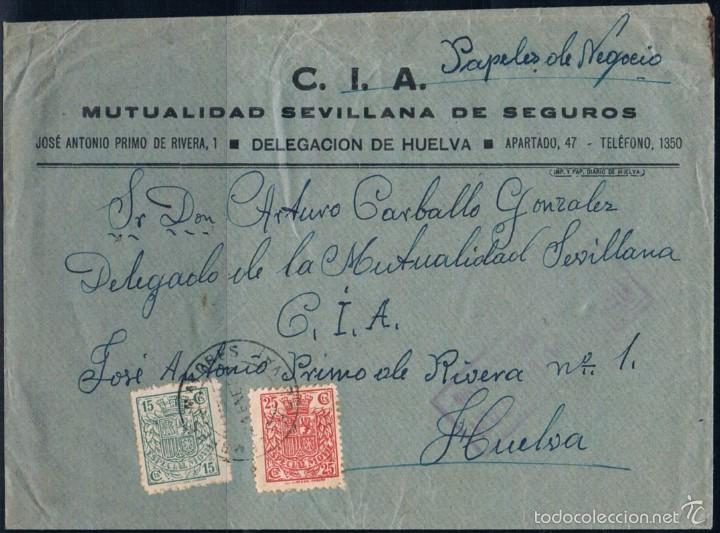 Papeles de Negocio
C. I. A.
MUTUALIDAD SEVILLANA DE SEGUROS
JOSÉ ANTONIO PRIMO DE RIVERA, 1 ■ DELEGACION DE HUELVA ■ APARTADO, 47 - TELÉFONO, 1350
(IMP. Y PAP. DIARIO DE HUELVA)
Sr Don Arturo Carballo Gonzalez
Delegado de la Mutualidad Sevillana
C.I.A.
José Antonio Primo de Rivera nº 1.
Huelva
15 Cs
Cs 15
25 Cs
ESPECIAL MOVIL
Cs 25
todocoleccion.net